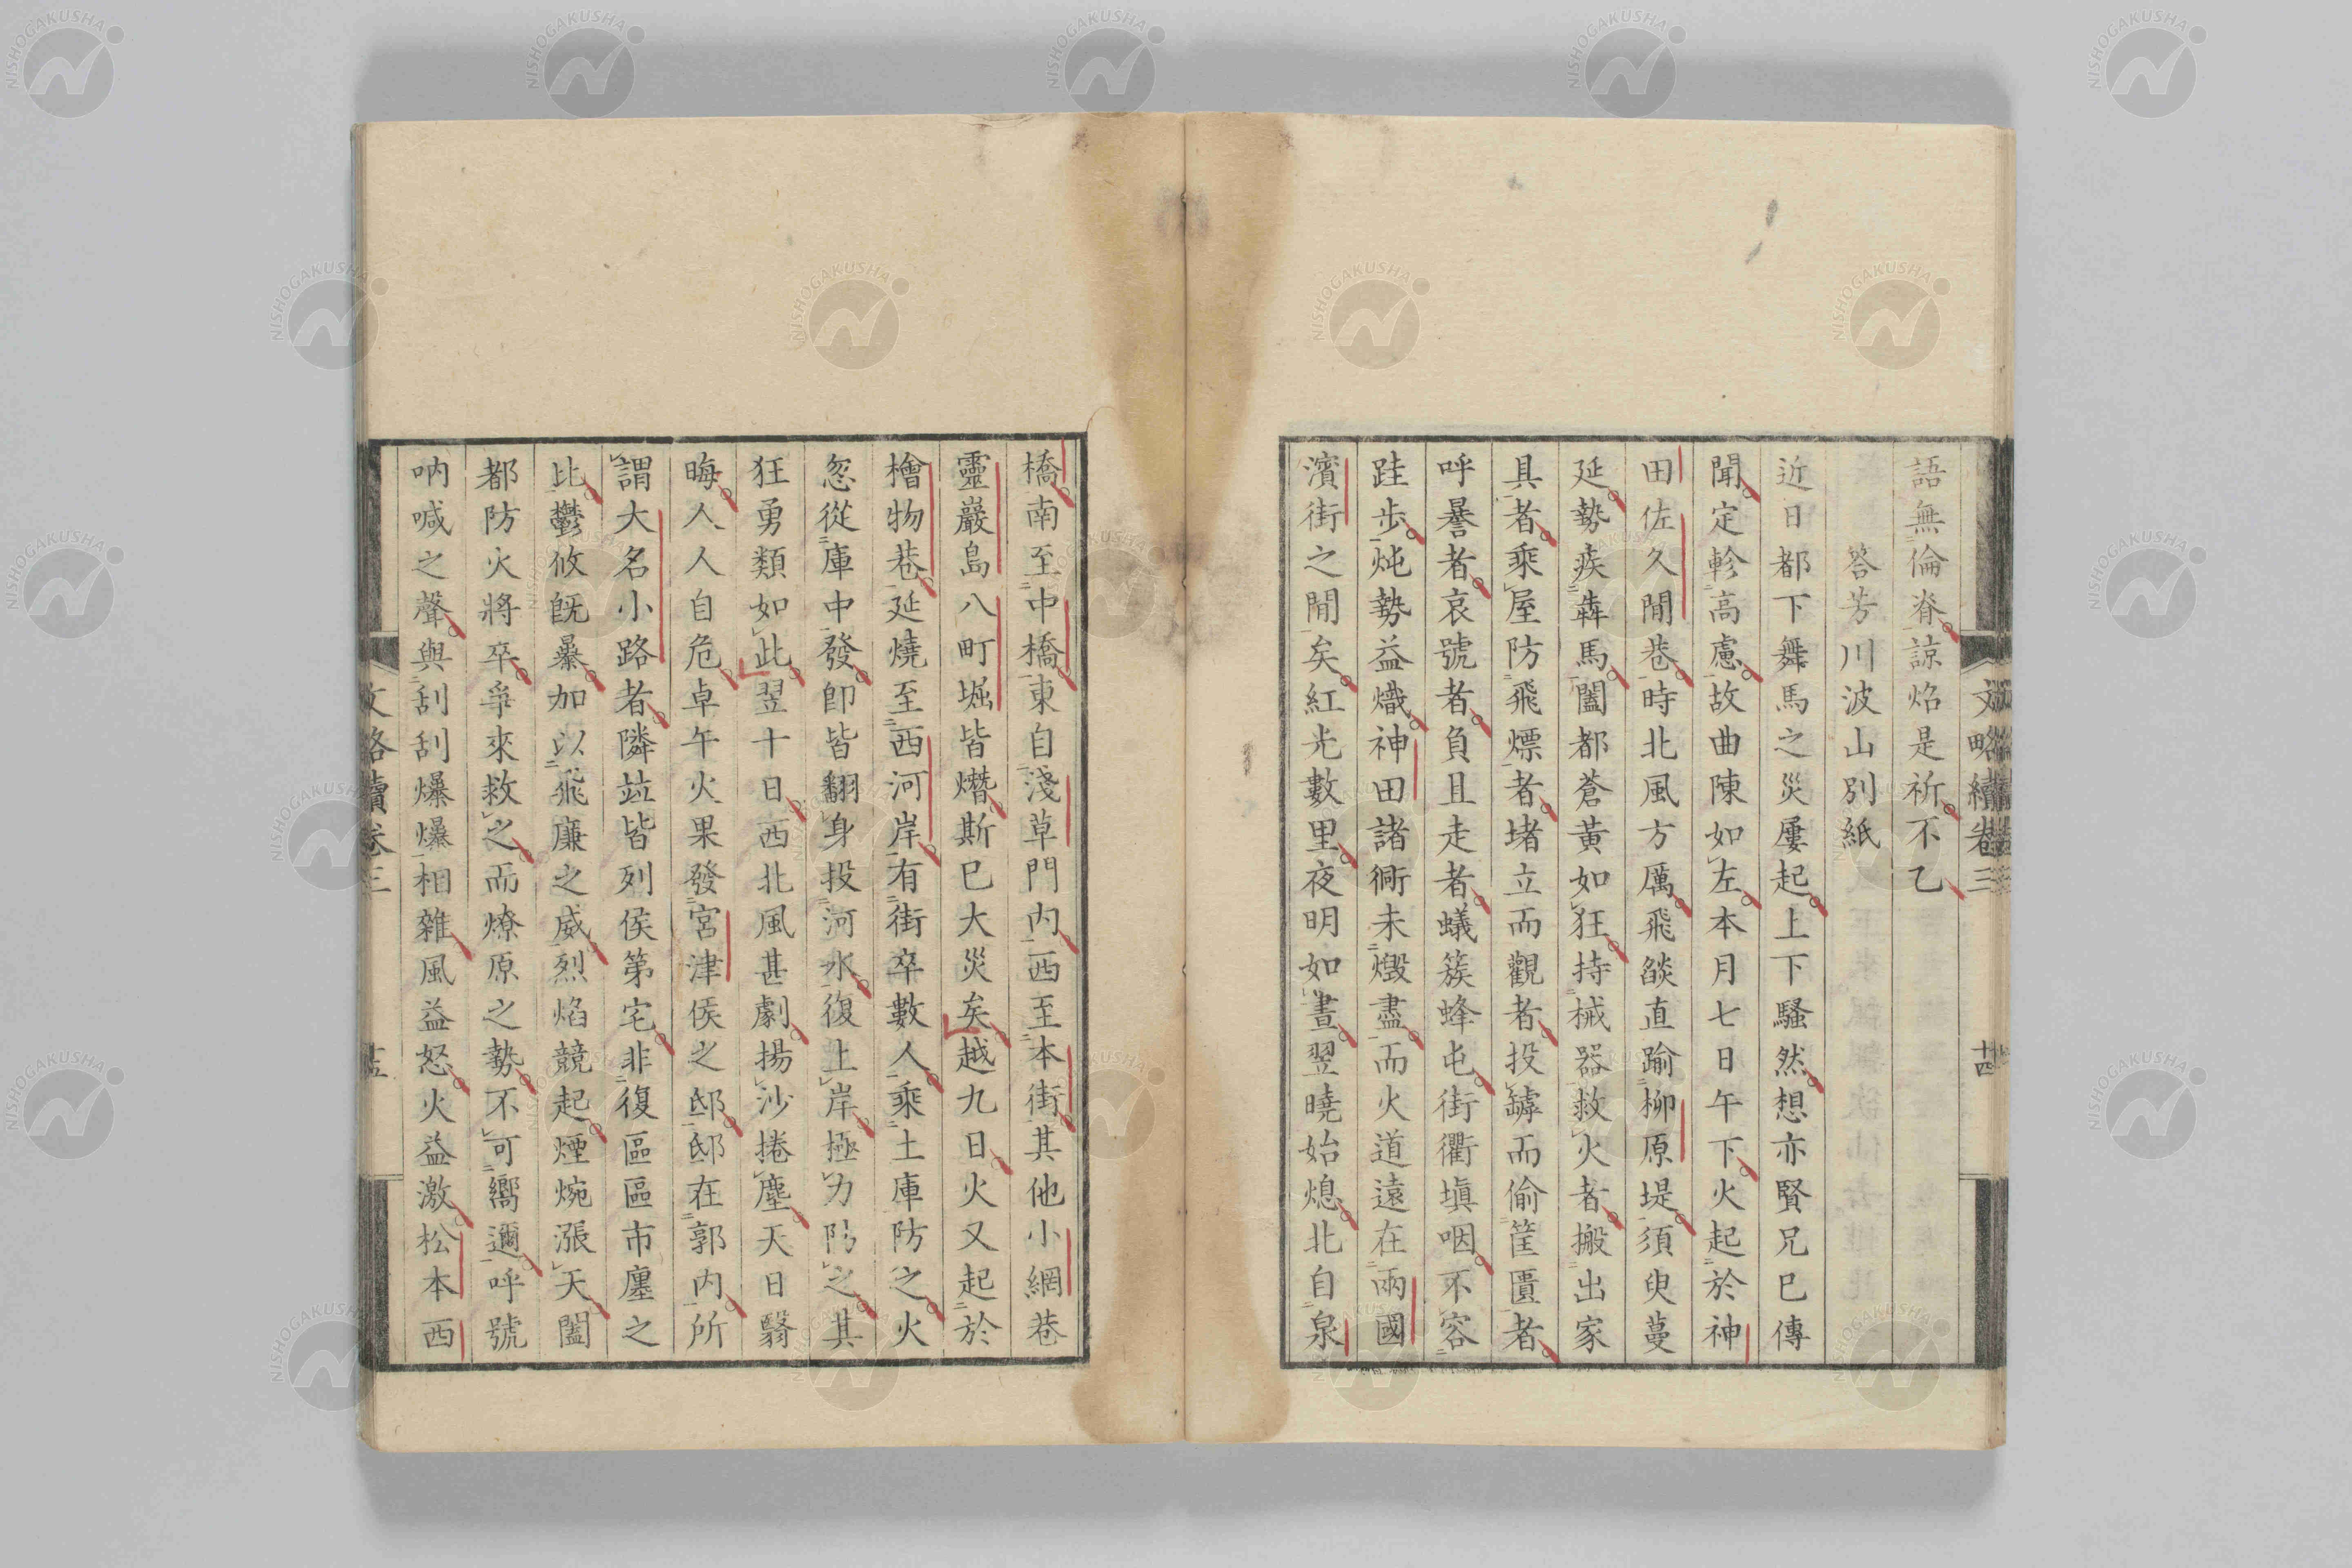 語無倫脊諒焰是祈不乙
答芳川波山別紙
近日都下舞馬之災屢起上下騷然想亦賢兄巳傳
聞定軫高慮故曲陳如左本月七日午下火起於神
田佐久間巷時北風方厲飛燄直踰柳原堤須臾蔓
延勢疾犇馬闔都蒼黃如狂持械器救火者搬出家
具者乘屋防飛熛者堵立而觀者投罅而偷筐匱者
呼謈者哀號者負且走者蟻簇蜂屯街衢塡咽不容
跬步炖勢益熾神田諸衕未燬盡而火道遠在兩國
濱街之間矣紅光數里夜明如晝翌曉始熄北自泉
文略續卷三
十四
橋南至中橋東自淺草門內西至本街其他小網巷
靈巖島八町堀皆熸斯巳大災矣越九日火又起於
檜物巷延燒至西河岸有街卒數人乘土庫防之火
忽從庫中發卽皆翻身投河水復上岸極力防之其
狂勇類如此翌十日西北風甚劇揚沙捲塵天日翳
晦人人自危卓午火果發宮津侯之邸邸在郭內所
謂大名小路者隣竝皆列侯第宅非復區區市廛之
比鬱攸旣暴加以飛廉之威烈焰競起煙焥漲天闔
都防火將卒爭來救之而燎原之勢不可嚮邇呼號
吶喊之聲與刮刮爆爆相雜風益怒火益激松本西
文略續卷三
NISHOGAKUSHA